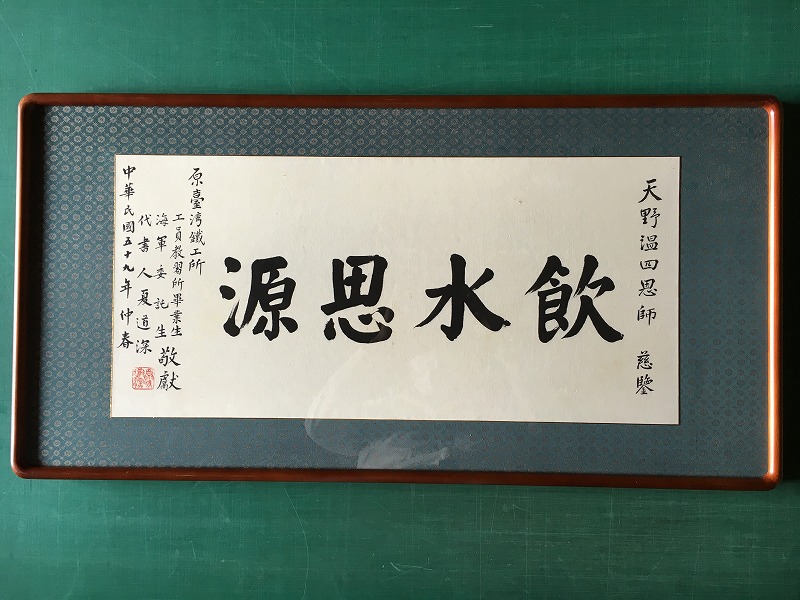 天野温四恩師　慈鑒
飲水思源
原臺湾鐵工所
工員教習所畢業生
海軍委託生
敬獻
代書人夏道深
中華民國五十九年仲春